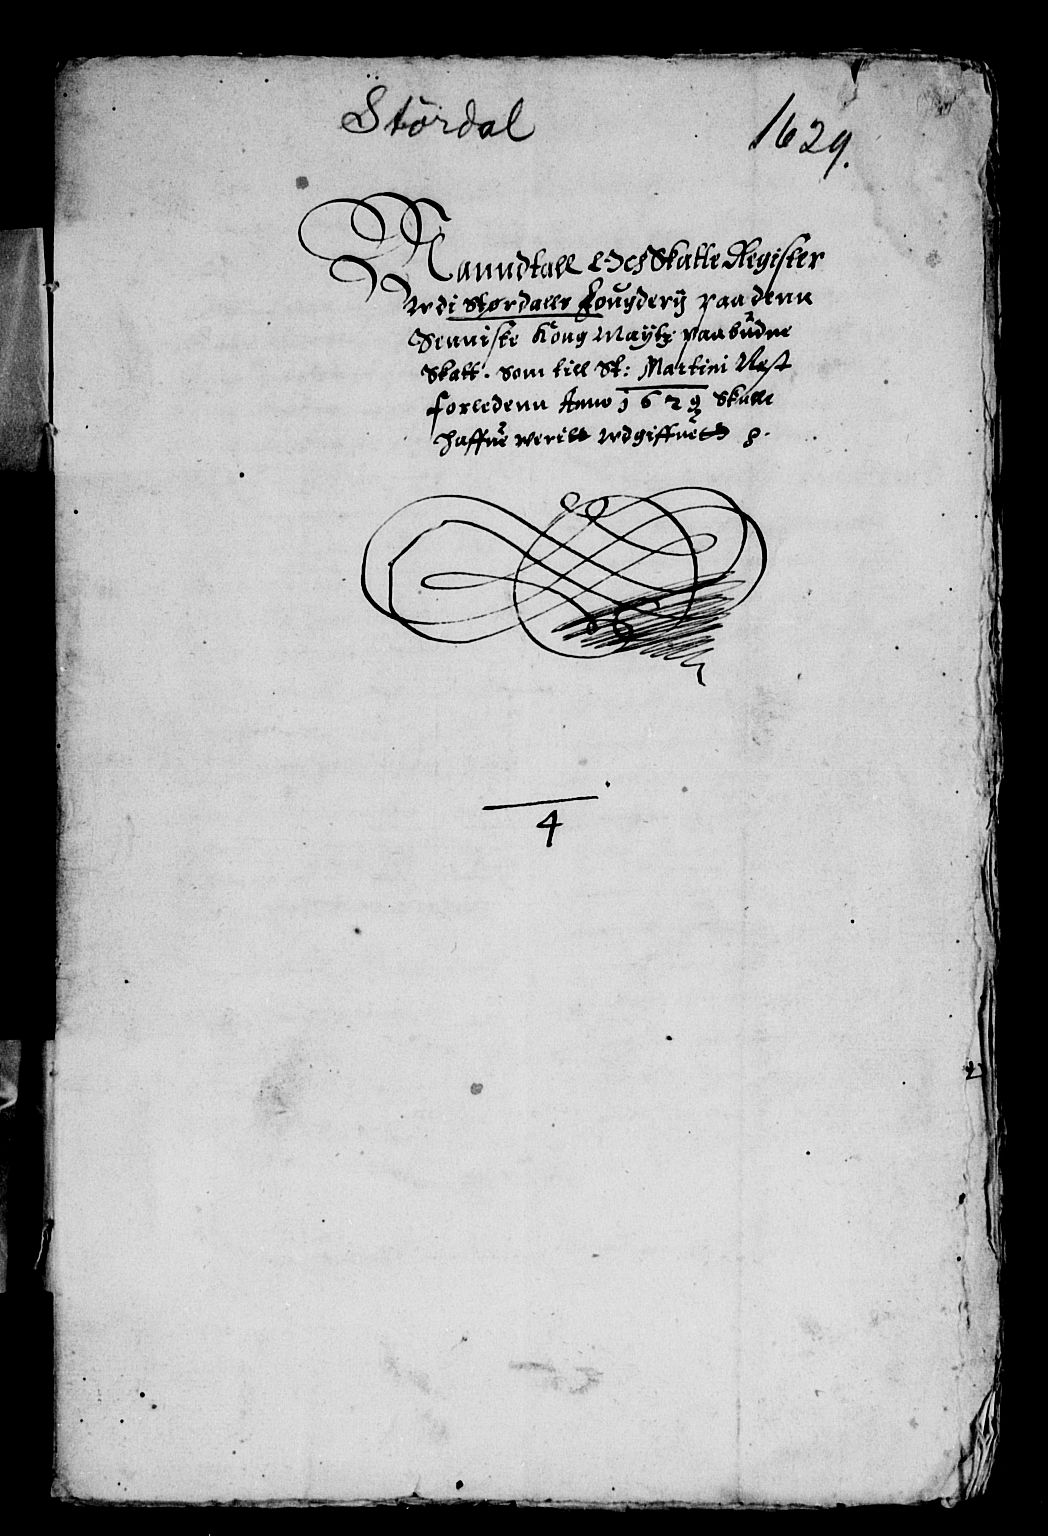 Stördal
1629.
Manndtall Och Skatte Register
Wdi Størdalls Fougderÿ paa denn
Senniste Kong Maÿtz paabudne
Skatt. som till St: Martini Nest
forledenn Anno 1629 Skulle
haffue weritt wdgiffuet
4